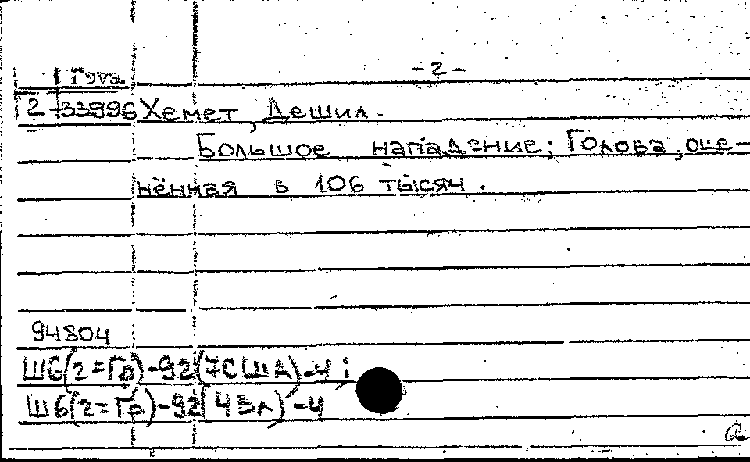 -2-
Tува
2-33996 Хемет, Дешил.
Большое нападение; Голова, оце-
нённая в 106 тысяч.
94804
Ш6(2=Гр)-92(7США)-4;
Ш6(2=Гр)-92(4Вл)-4